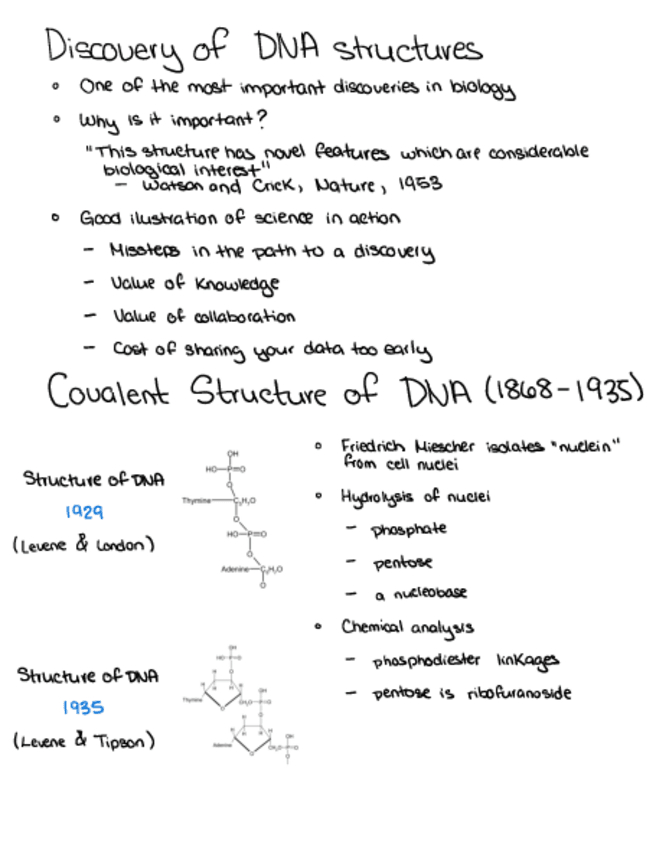 Discovery of DNA structures
◦ One of the most important discoveries in biology
◦ Why is it important?
"This structure has novel features which are considerable
biological interest"
– Watson and Crick, Nature, 1953
◦ Good ilustration of science in action
– Missteps in the path to a discovery
– Value of Knowledge
– Value of collaboration
– Cost of sharing your data too early
Covalent Structure of DNA (1868-1935)
Structure of DNA
1929
(Levene & London)
OH
HO-P=O
O
Thymine
O
HO-P=O
O
Adenine
O
◦ Friedrich Miescher isolates "nuclein"
from cell nuclei
◦ Hydrolysis of nuclei
– phosphate
– pentose
– a nucleobase
◦ Chemical analysis
– phosphodiester linkages
– pentose is ribofuranoside
Structure of DNA
1935
(Levene & Tipson)
Thymine
Adenine